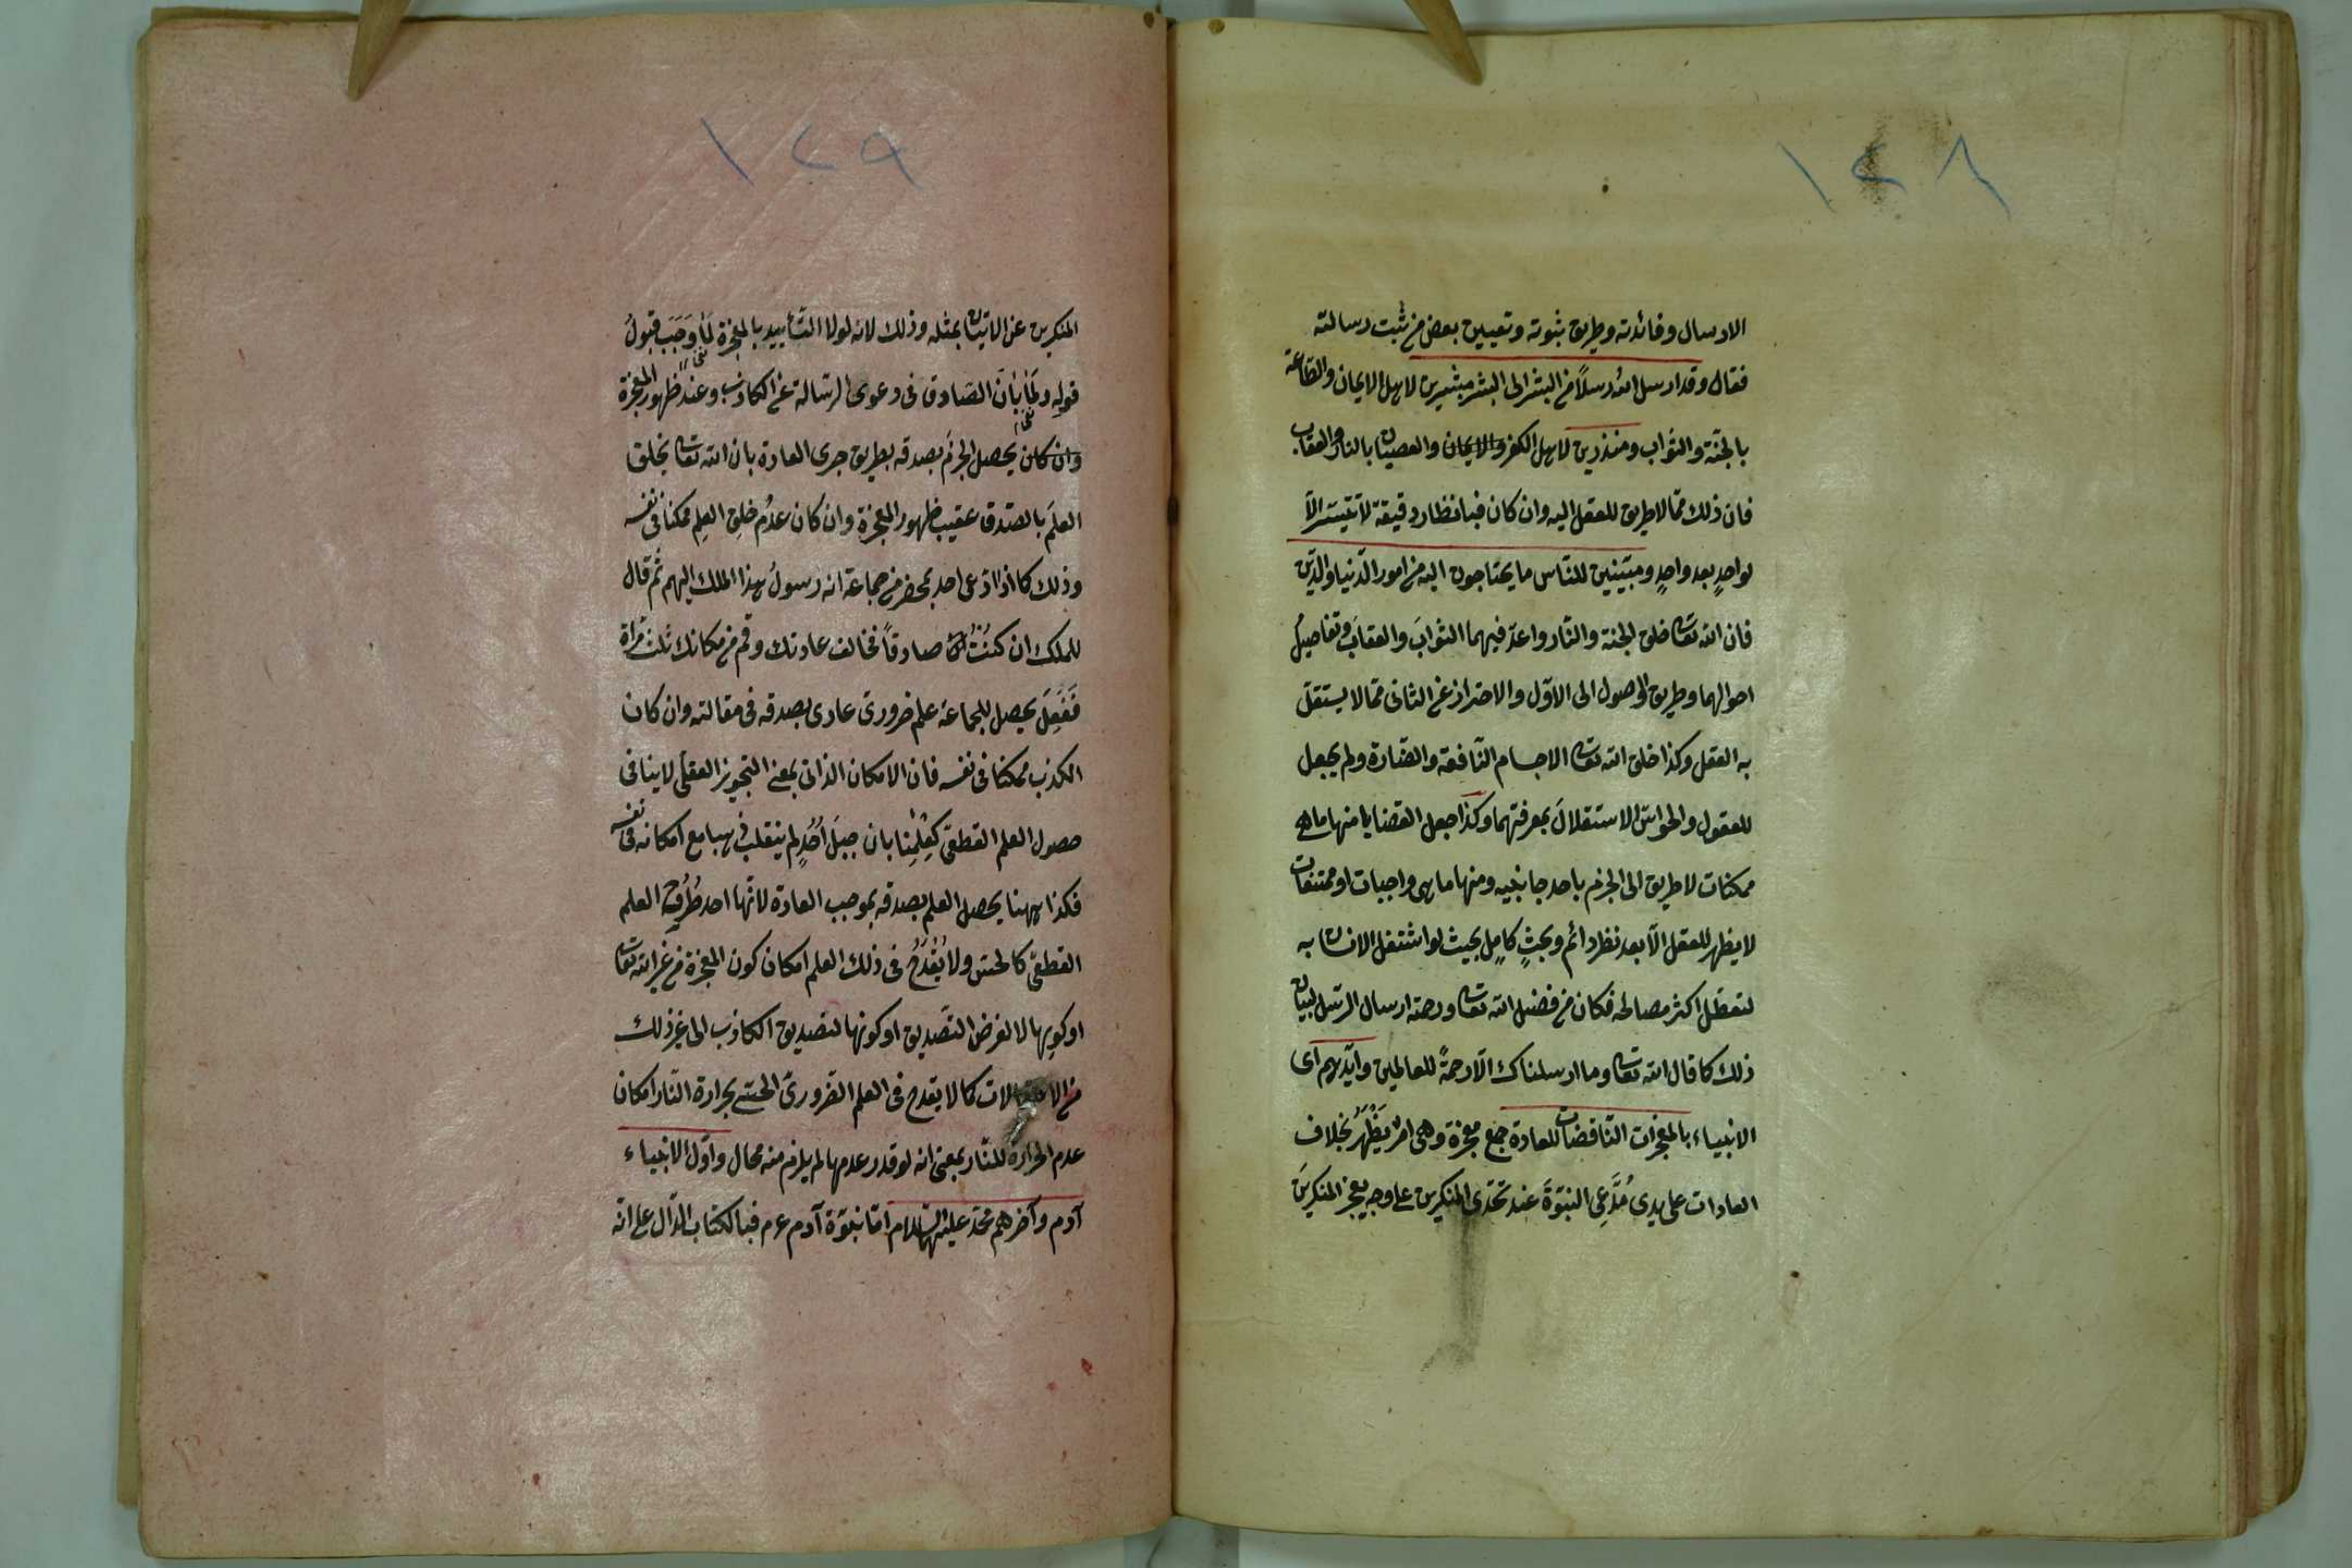 ١٢٨
الارسال وفائدته وطريق ثبوته وتعيين بعض من ثبت رسالته
فقال وقد ارسل الله رسلاً من البشر الى البشر مبشرين لاهل الايمان والطاعة
بالجنة والثواب ومنذرين لاهل الكفر والايمان والعصيان بالنار والعقاب
فان ذلك مما لا طريق للعقل اليه وان كان فبانظار دقيقة لا تتيسر الّا
لواحدٍ بعد واحدٍ ومبيّنين للناس ما يحتاجون اليه من امور الدّنيا والدّين
فان الله تعالى خلق الجنة والنّار واعدّ فيهما الثوابَ والعقابَ وتفاصيلُ
احوالهما وطريق الوصول الى الاوّل والاحتراز عن الثانى ممّا لا يستقلّ
به العقل وكذا خلق الله تعالى الاجسام النّافعة والضّارة ولم يجعل
للعقول والحواسّ الاستقلالَ بمعرفتهما وكذا جعل القضايا منها ما هى
ممكنات لا طريق الى الجزم باحد جانبيه ومنها ما هى واجبات او ممتنعات
لا يظهر للعقل الّا بعد نظر دائم وبحثٍ كاملٍ بحيث لو اشتغل الانسان به
لتعطّل اكثر مصالحه فكان من فضل الله تعالى ورحمته ارسال الرسل لبيان
ذلك كما قال الله تعالى وما ارسلناك الّا رحمةً للعالمين وايّدهم اى
الانبياء بالمعجزات النّاقضات للعادة جمع معجزة وهى امر يَظْهَرُ بخلاف
العادات على يدى مُدَّعِى النبوّةَ عند تحدّى المنكرين على وجه يعجز المنكرينَ
١٢٩
المنكرين عن الاتيان بمثله وذلك لانه لولا التّأييد بالمعجزة لَمَا وَجَبَ قبولُ
قوله ولَمَا بَانَ الصّادق فى دعوى الرّسالة عن الكاذب وعند ظهور المعجزة
وان كان يحصل الجزمُ بصدقه بطريق جرى العادة بان الله تعالى يخلق
العلمَ بالصّدق عقيب ظهور المعجزة وان كان عدمُ خلقِ العلمِ ممكنا فى نفسه
وذلك كما اذا ادّعى احد بمحضر من جماعة انه رسولُ هذا الملك اليهم ثم قال
للملك ان كنتُ صادقاً فخالف عادتك وقم من مكانك ثلث مراة
فَفَعَلَ يحصل للجماعة علم ضرورىّ عادى بصدقه فى مقالته وان كان
الكذب ممكنا فى نفسه فان الامكان الذاتى بمعنى التجويز العقلى لا ينافى
حصول العلم القطعىّ كَعِلْمِنا بان جبلَ اُحُدٍ لم ينقلب ذهبا مع امكانه فى نفسه
فكذا ههنا يحصل العلم بصدقه بموجب العادة لانّها احد طُرُق العلم
القطعىّ كالحسّ ولا يَقْدَحُ فى ذلك العلم امكان كون المعجزة من غير الله تعالى
او كونها لا لغرض التّصديق او كونها لتصديق الكاذب الى غير ذلك
من الاحتمالات كما لا يقدح فى العلم الضرورىّ الحسّى بحرارة النّار امكان
عدم الحرارة للنّار بمعنى انه لو قدر عدمها لم يلزم منه محال واوّل الانبياء
آدم وآخرهم محمّد عليهما السّلام امّا نبوّة آدم عم فبالكتاب الدّال على انّه